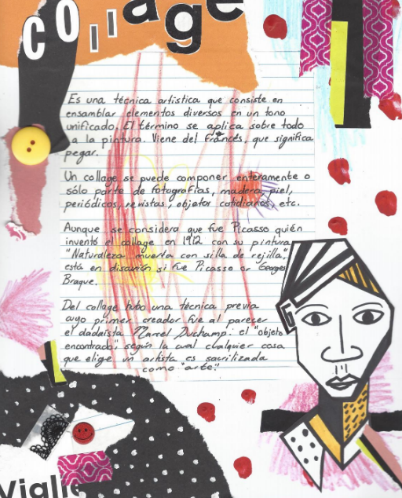 collage
Es una técnica artística que consiste en
ensamblar elementos diversos en un tono
unificado. El término se aplica sobre todo
a la pintura. Viene del francés, que significa
pegar.
Un collage se puede componer enteramente o
sólo parte de fotografías, madera, piel,
periódicos, revistas, objetos cotidianos, etc.
Aunque se considera que fue Picasso quién
inventó el collage en 1912 con su pintura
"Naturaleza muerta con silla de rejilla",
está en discusión si fue Picasso or Georges
Braque.
Del collage hubo una técnica previa
cuyo primer creador fue al parecer
el dadaísta Marcel Duchamp: el "objeto
encontrado", según la cual cualquier cosa
que elige un artista es sacrilizada
como "arte"